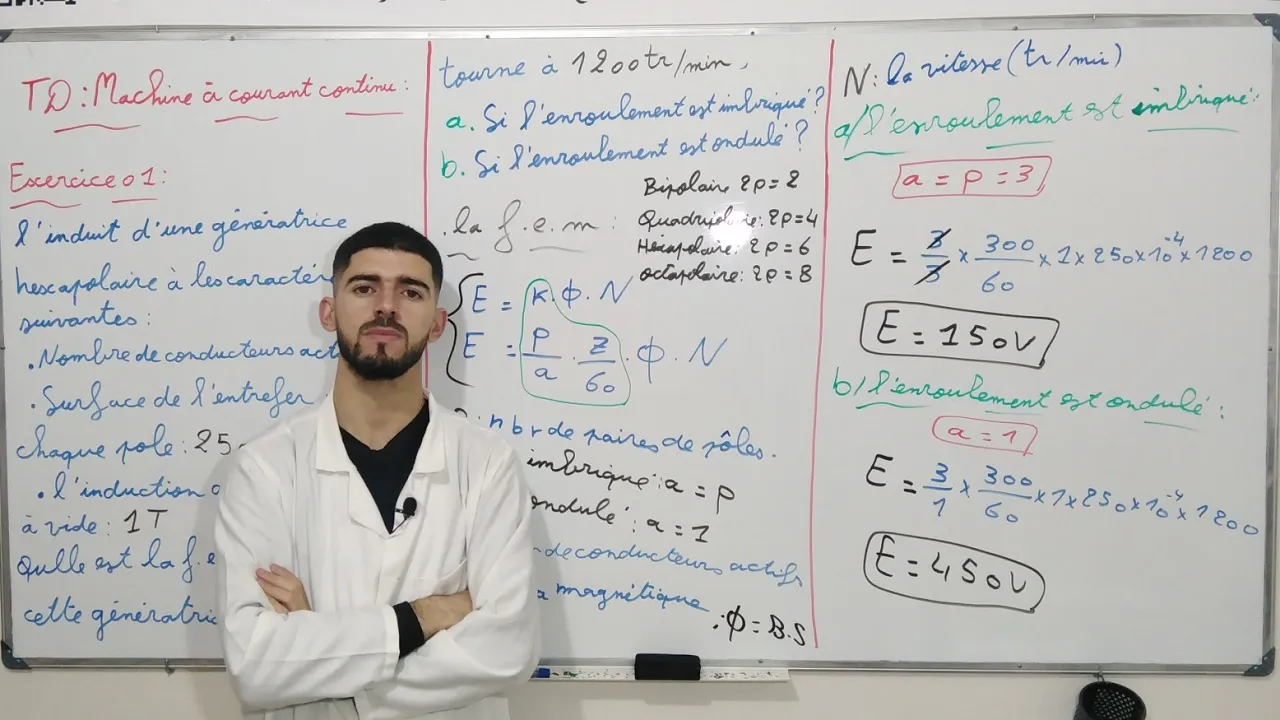 TD: Machine à courant continu:
Exercice 01:
l'induit d'une génératrice
hexapolaire à les caracté
suivantes:
.Nombre de conducteurs act
.Surface de l'entrefer
chaque pole: 25
.l'induction
à vide: 1T
Qulle est la f.e
cette génératric
tourne à 1200tr/min,
a. Si l'enroulement est imbriqué?
b. Si l'enroulement est ondulé?
Bipolaire 2p=2
Quadripolaire: 2p=4
Hexapolaire: 2p=6
octapolaire: 2p=8
.la f.e.m:
E = K.Φ.N
E = p/a . Z/60 . Φ . N
nbr de paires de pôles.
imbriqué: a = p
ondulé: a = 1
de conducteurs actifs
magnétique
.Φ = B.S
N: la vitesse (tr/min)
a/ l'enroulement est imbriqué:
a = p = 3
E = 3/3 × 300/60 × 1 × 250 × 10⁻⁴ × 1200
E = 150V
b/ l'enroulement est ondulé:
a = 1
E = 3/1 × 300/60 × 1 × 250 × 10⁻⁴ × 1200
E = 450V